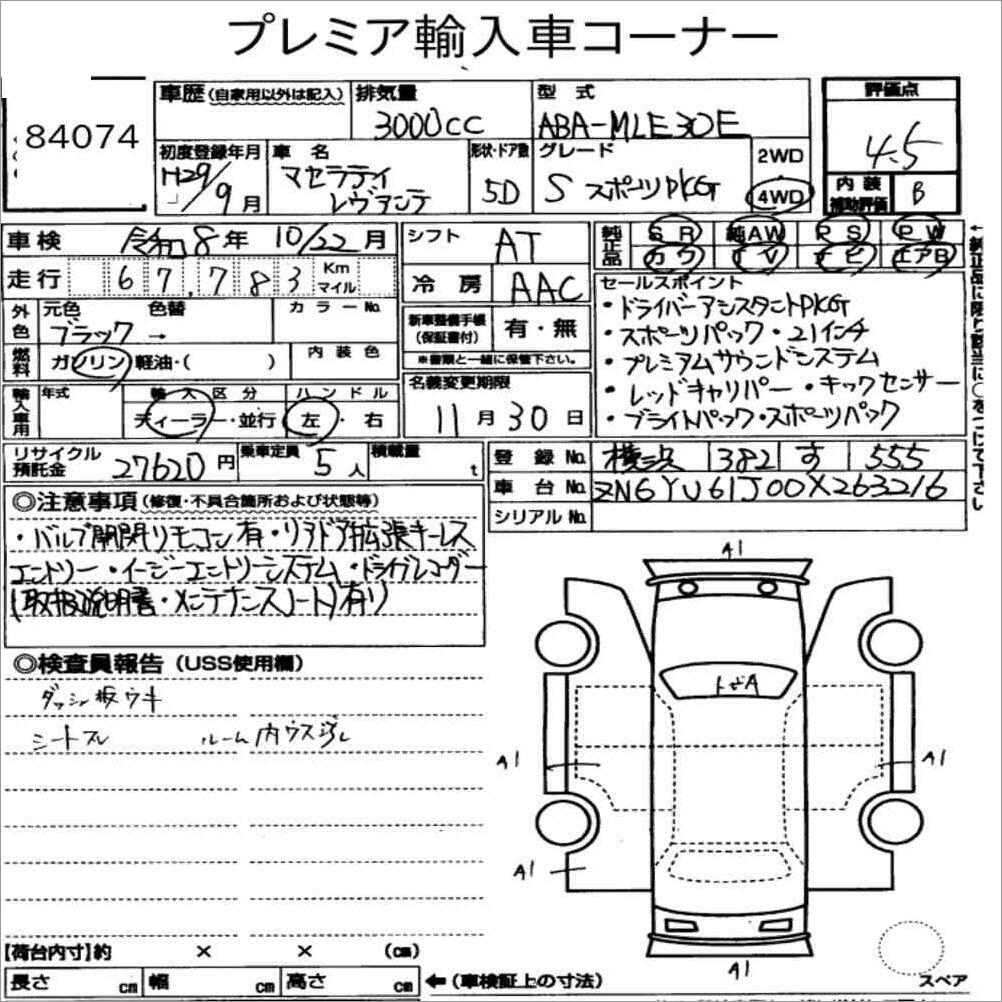 プレミア輸入車コーナー
84074
車歴 (自家用以外は記入) 排気量 3000cc 型式 ABA-MLE30E 評価点 4.5
初度登録年月 H29/9月 車名 マセラティ レヴァンテ 形状・ドア数 5D グレード S スポーツPKG 2WD 4WD 内装補助評価 B
車検 令和8年 10/22月 シフト AT 純正品 SR 純AW PS PW
走行 67,783 Km マイル 冷房 AAC カワ TV ナビ エアB
外色 元色 ブラック → 色替 カラーNo. 新車整備手帳 (保証書付) 有・無
※書類と一緒に保管下さい。
燃料 ガソリン 軽油・( ) 内装色
セールスポイント
・ドライバーアシスタントPKG
・スポーツパック・21インチ
・プレミアムサウンドシステム
・レッドキャリパー・キックセンサー
・ブライトパック・スポーツパック
輸入車用 年式 輸入区分 ディーラー・並行 ハンドル 左・右 名義変更期限 11月30日
リサイクル預託金 27620円 乗車定員 5人 積載量 t
登録No. 横浜 382 す 555
車台No. ZN6YU61J00X263216
シリアルNo.
◎注意事項 (修復・不具合箇所および状態等)
・バルブ開閉リモコン有・リアドア拡張キーレス
エントリー・イージーエントリーシステム・ドライブレコーダー
(取扱説明書・メンテナンスノート)有り
◎検査員報告 (USS使用欄)
ダッシュ板ウキ
シートスレ ルーム内ウス汚レ
A1
トビA
A1
A1
A1
A1
【荷台内寸】約 × × (cm)
長さ cm 幅 cm 高さ cm ←(車検証上の寸法)
スペア